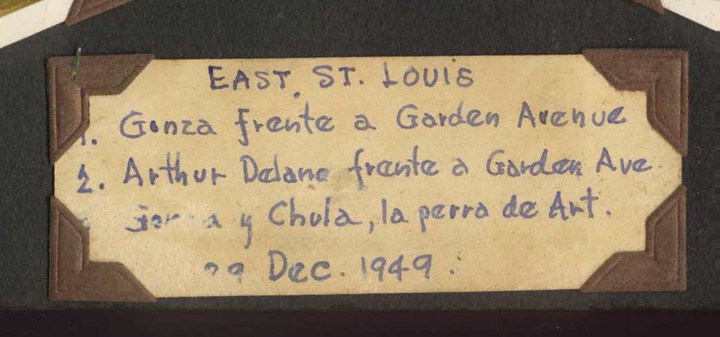 EAST. ST. LOUIS
1. Gonza frente a Garden Avenue
2. Arthur Delano frente a Garden Ave.
Gonza y Chula, la perra de Art.
29 Dec. 1949.